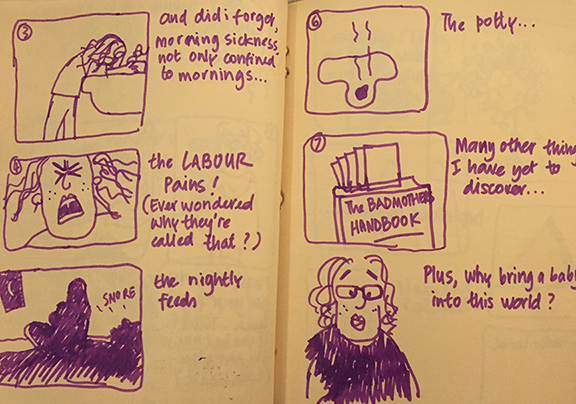 3
and did i forget,
morning sickness
not only confined
to mornings...
4
the LABOUR
Pains!
(Ever wondered
why they're
called that?)
SNORE
the nightly
feeds
6
The potty...
7
The BADMOTHERS
HANDBOOK
Many other things
I have yet to
discover...
Plus, why bring a baby
into this world?